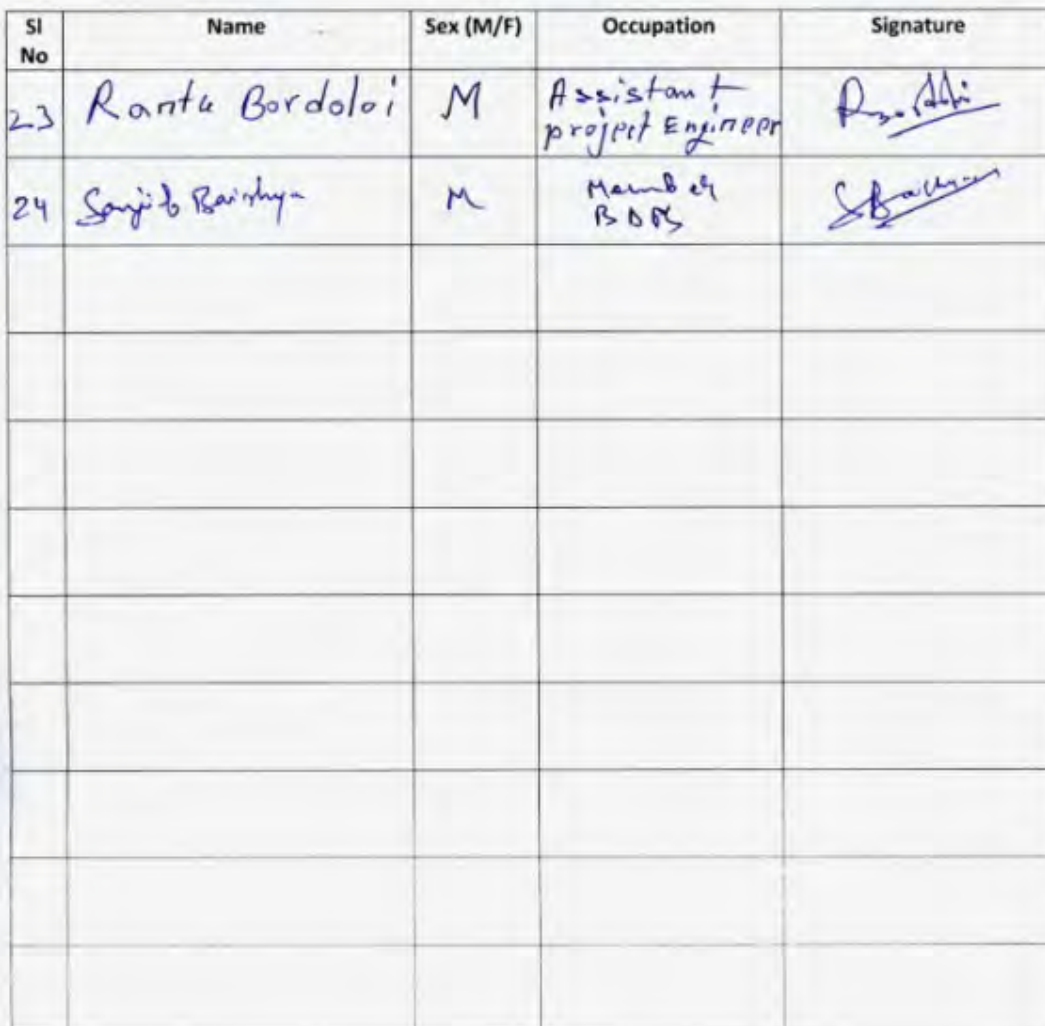 Sl No Name Sex (M/F) Occupation Signature
23 Rantu Bordoloi M Assistant
project Engineer
24 Sanjib Baishya M Member